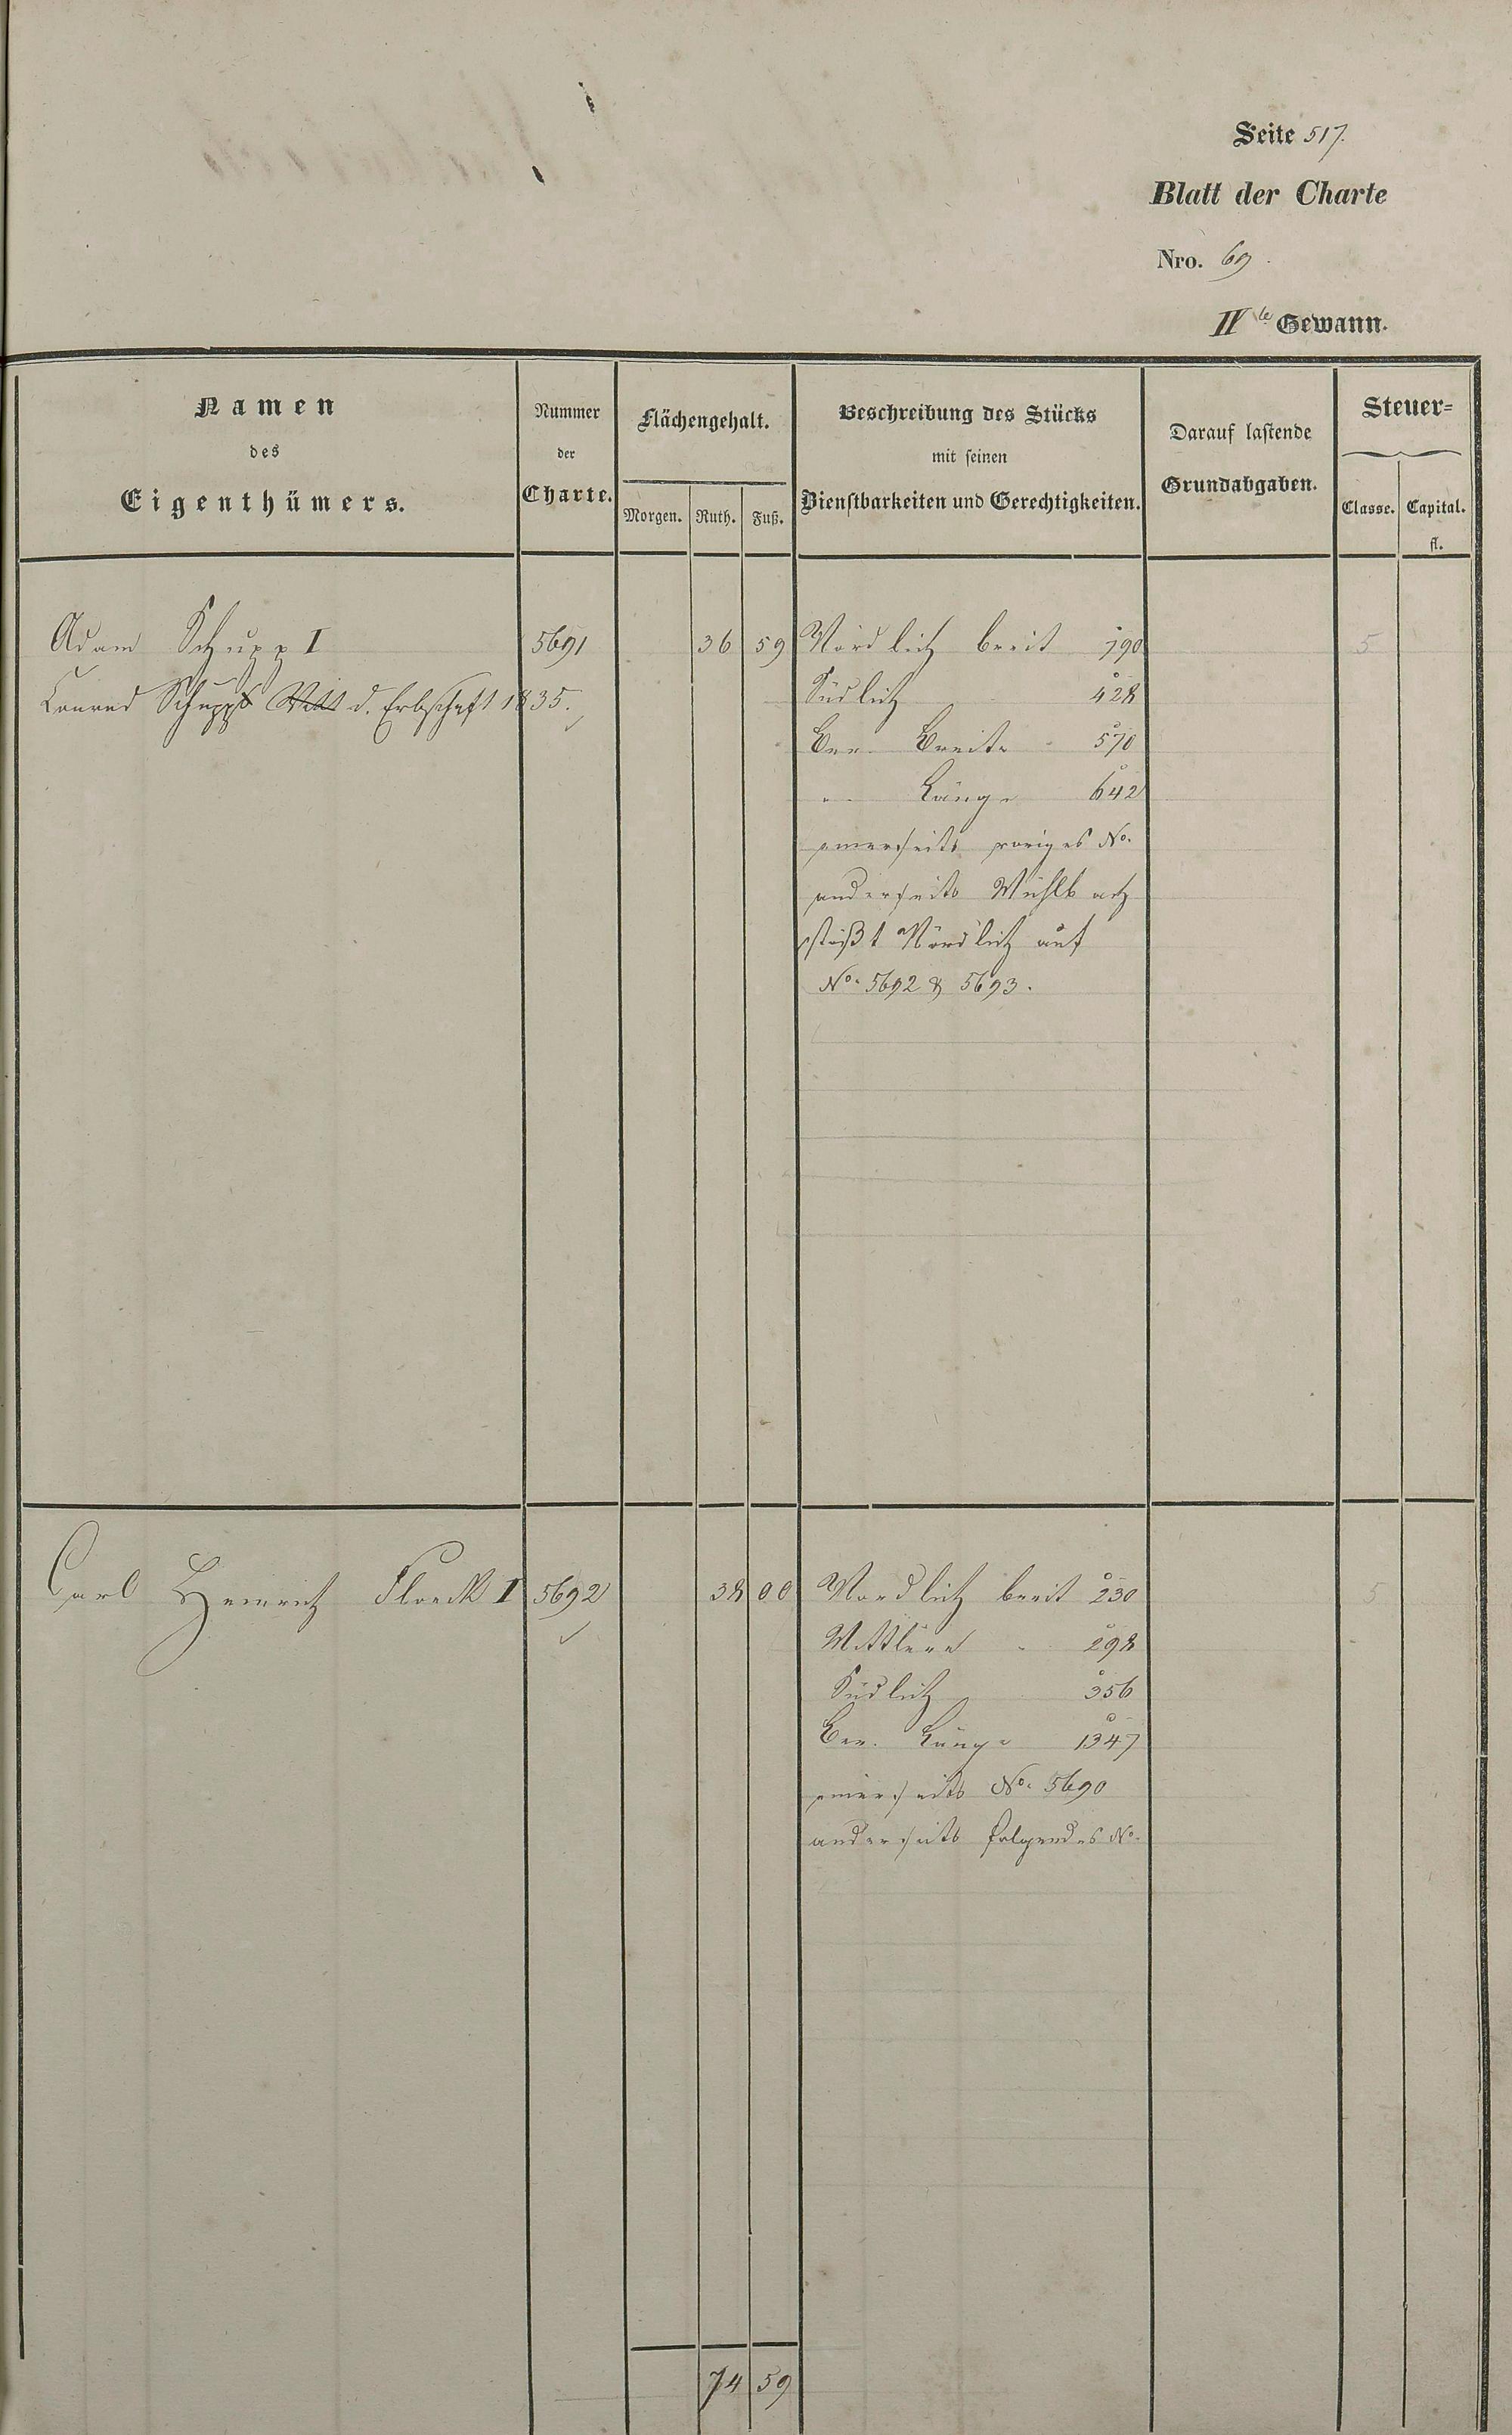 Seite 517.
Blatt der Charte
Nro. 69.
IVte Gewann.
Namen
des
Eigenthümers.
Nummer
der
Charte.
Flächengehalt.
Morgen. Ruth. Fuß.
Beschreibung des Stücks
mit seinen
Dienstbarkeiten und Gerechtigkeiten.
Darauf lastende
Grundabgaben.
Steuer-
Classe. Capital.
fl.
Adam Schupp I 5691 36 59 Nördlich breit 190 5
Conrad Schupps d. Erbschaft 1835. Südlich 428
Ber. Breite 570
" Länge 642
einerseits voriges No.
anderseits Mühlbach
stößt Nördlich auf
No. 5692 & 5693.
Carl Heinrich Flöck I 5692 38 00 Nördlich breit 230 5
Mittlere " 298
Südlich 356
Ber. Länge 1347
einerseits No. 5690
anderseits folgendes No.
74 59